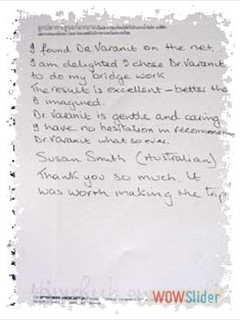 I found Dr Varanit on the net.
I am delighted I chose Dr. Varanit
to do my bridge work
The result is excellent - better tha
I imagined.
Dr. Varanit is gentle and caring
I have no hesitation in recommending
Dr Varanit what so ever.
Susan Smith (Australian)
Thank you so much. It
was worth making the trip
WOWSlider